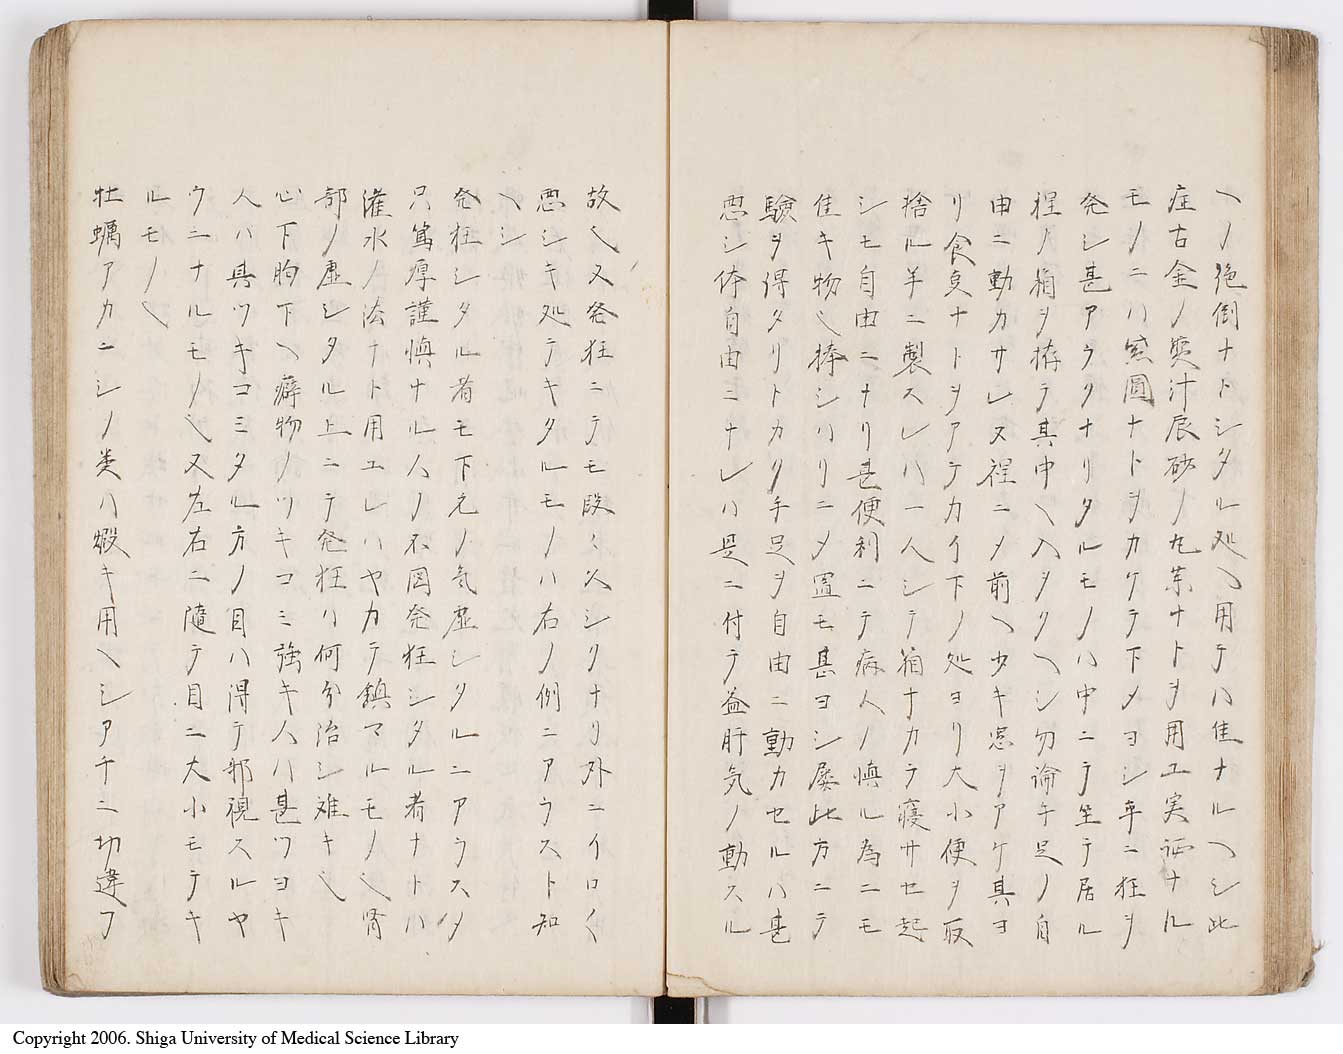 ヘノ絶倒ナトシタル処ヘ用テハ佳ナルヘシ此
症古金ノ煎汁辰砂ノ丸薬ナトヲ用エ実証ナル
モノニハ紫圓ナトヲカケテ下メヨシ卒ニ狂ヲ
発シ甚アラクナリタルモノハ中ニテ坐テ居ル
程ノ箱ヲ拵テ其中ヘ入ヲクヘシ勿論手足ノ自
由ニ動カサレヌ程ニメ前ヘ少キ窓ヲアケ其ヨ
リ食臭ナトヲアテカイ下ノ処ヨリ大小便ヲ取
捨ル羊ニ製スレハ一人シテ箱ナカラ寝サセ起
シモ自由ニナリ甚便利ニテ病人ノ慎ル為ニモ
佳キ物也捧シハリニメ置モ甚ヨシ屡此方ニテ
驗ヲ得タリトカク手足ヲ自由ニ動カセルハ甚
悪シ体自由ニナレハ是ニ付テ益肝気ノ動スル
故也又発狂ニテモ段々久シクナリ外ニイロ〱
悪シキ処テキタルモノハ右ノ例ニアラスト知
ヘシ
発狂シタル者モ下元ノ気虚シタルニアラスタ
只篤厚謹慎ナル人ノ不図発狂シタル者ナトハ
灌水ノ法ナト用エレハヤカテ鎮マルモノ也腎
部ノ虚シタル上ニテ発狂ハ何分治シ難キ也
心下胸下ヘ癖物ノツキコミ強キ人ハ甚ツヨキ
人ハ其ツキコミタル方ノ目ハ得テ邪視スルヤ
ウニナルモノ也又左右ニ隨テ目ニ大小モテキ
ルモノ也
牡蠣アカニシノ类ハ煅キ用ヘシアチニ切違フ